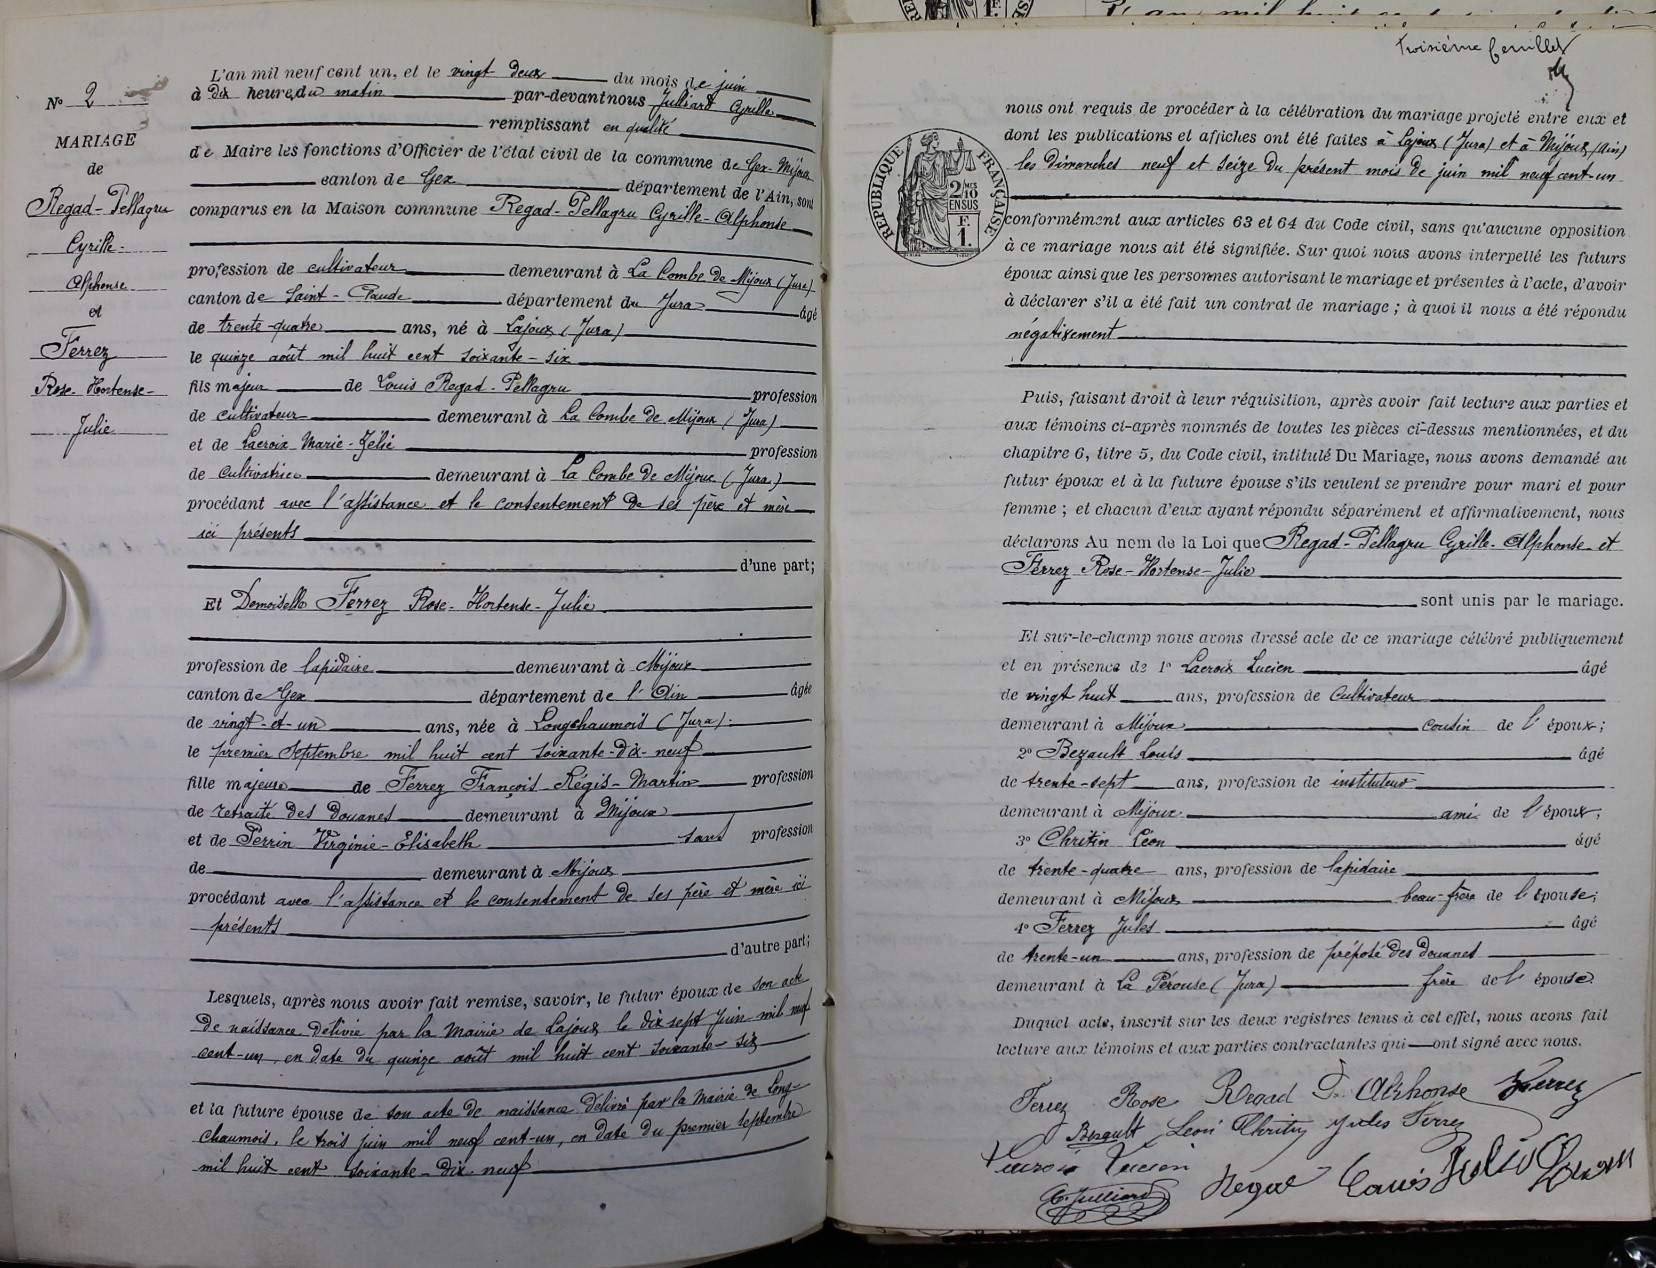 N° 2
MARIAGE
de
Regad-Pellagru
Cyrille
Alphonse
et
Ferrez
Rose-Hortense-
Julie
L'an mil neuf cent un, et le vingt deux du mois de juin
à dix heures du matin par-devant nous Julliard Cyrille
remplissant en qualité
de Maire les fonctions d'Officier de l'état civil de la commune de Gex-Mijoux
canton de Gex département de l'Ain, sont
comparus en la Maison commune Regad-Pellagru Cyrille-Alphonse
profession de cultivateur demeurant à La Combe de Mijoux (Jura)
canton de Saint-Claude département du Jura âgé
de trente-quatre ans, né à Lajoux (Jura)
le quinze août mil huit cent soixante-six
fils majeur de Louis Regad-Pellagru profession
de cultivateur demeurant à La Combe de Mijoux (Jura)
et de Lacroix Marie-Zélie profession
de cultivatrice demeurant à La Combe de Mijoux (Jura)
procédant avec l'assistance et le consentement de ses père et mère
ici présents
d'une part;
Et Demoiselle Ferrez Rose-Hortense-Julie
profession de lapidaire demeurant à Mijoux
canton de Gex département de l'Ain âgée
de vingt-et-un ans, née à Longchaumois (Jura)
le premier Septembre mil huit cent soixante-dix-neuf
fille majeure de Ferrez François Régis-Martin profession
de retraité des Douanes demeurant à Mijoux
et de Perrin Virginie-Elisabeth sans profession
de demeurant à Mijoux
procédant avec l'assistance et le consentement de ses père et mère ici
présents
d'autre part;
Lesquels, après nous avoir fait remise, savoir, le futur époux de son acte
de naissance délivré par la Mairie de Lajoux le dix sept Juin mil neuf
cent-un, en date du quinze août mil huit cent soixante-six
et la future épouse de son acte de naissance délivré par la Mairie de Long-
chaumois, le trois juin mil neuf cent-un, en date du premier septembre
mil huit cent soixante-dix-neuf
Troisième feuillet
RÉPUBLIQUE FRANÇAISE
2/10
EN SUS
F.
1.
nous ont requis de procéder à la célébration du mariage projeté entre eux et
dont les publications et affiches ont été faites à Lajoux (Jura) et à Mijoux (Ain)
les Dimanches neuf et seize du présent mois de juin mil neuf cent-un
conformément aux articles 63 et 64 du Code civil, sans qu'aucune opposition
à ce mariage nous ait été signifiée. Sur quoi nous avons interpellé les futurs
époux ainsi que les personnes autorisant le mariage et présentes à l'acte, d'avoir
à déclarer s'il a été fait un contrat de mariage ; à quoi il nous a été répondu
négativement
Puis, faisant droit à leur réquisition, après avoir fait lecture aux parties et
aux témoins ci-après nommés de toutes les pièces ci-dessus mentionnées, et du
chapitre 6, titre 5, du Code civil, intitulé Du Mariage, nous avons demandé au
futur époux et à la future épouse s'ils veulent se prendre pour mari et pour
femme ; et chacun d'eux ayant répondu séparément et affirmativement, nous
déclarons Au nom de la Loi que Regad-Pellagru Cyrille-Alphonse et
Ferrez Rose-Hortense-Julie
sont unis par le mariage.
Et sur-le-champ nous avons dressé acte de ce mariage célébré publiquement
et en présence de 1° Lacroix Lucien âgé
de vingt huit ans, profession de Cultivateur
demeurant à Mijoux cousin de l'époux;
2° Bezault Louis âgé
de trente-sept ans, profession de instituteur
demeurant à Mijoux ami de l'époux;
3° Christin Léon âgé
de trente-quatre ans, profession de lapidaire
demeurant à Mijoux beau-frère de l'épouse;
4° Ferrez Jules âgé
de trente-un ans, profession de préposé des douanes
demeurant à La Pérouse (Jura) frère de l'épouse
Duquel acte, inscrit sur les deux registres tenus à cet effet, nous avons fait
lecture aux témoins et aux parties contractantes qui ont signé avec nous.
Ferrez Rose Regad P. Alphonse Ferrez
Bezault Léon Christin Jules Ferrez
Lacroix Lucien
C. Julliard Regad Louis